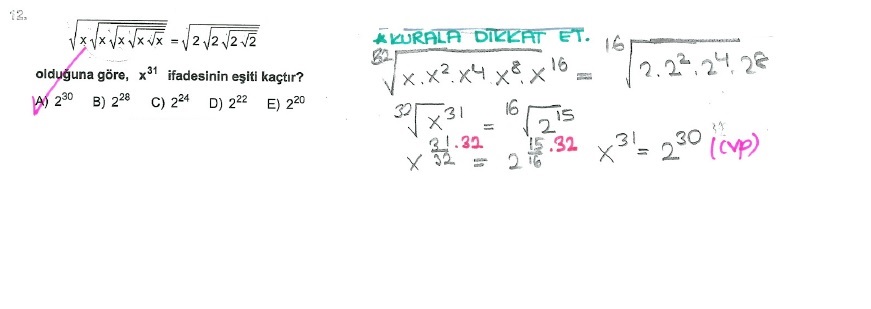 12.
√(x√(x√(x√(x√x)))) = √(2√(2√(2√2)))
olduğuna göre, x³¹ ifadesinin eşiti kaçtır?
A) 2³⁰ B) 2²⁸ C) 2²⁴ D) 2²² E) 2²⁰
*KURALA DİKKAT ET.
³²√(x.x².x⁴.x⁸.x¹⁶) = ¹⁶√(2.2².2⁴.2⁸)
³²√x³¹ = ¹⁶√2¹⁵
x^(31/32 .32) = 2^(15/16 .32) x³¹ = 2³⁰ (cvp)